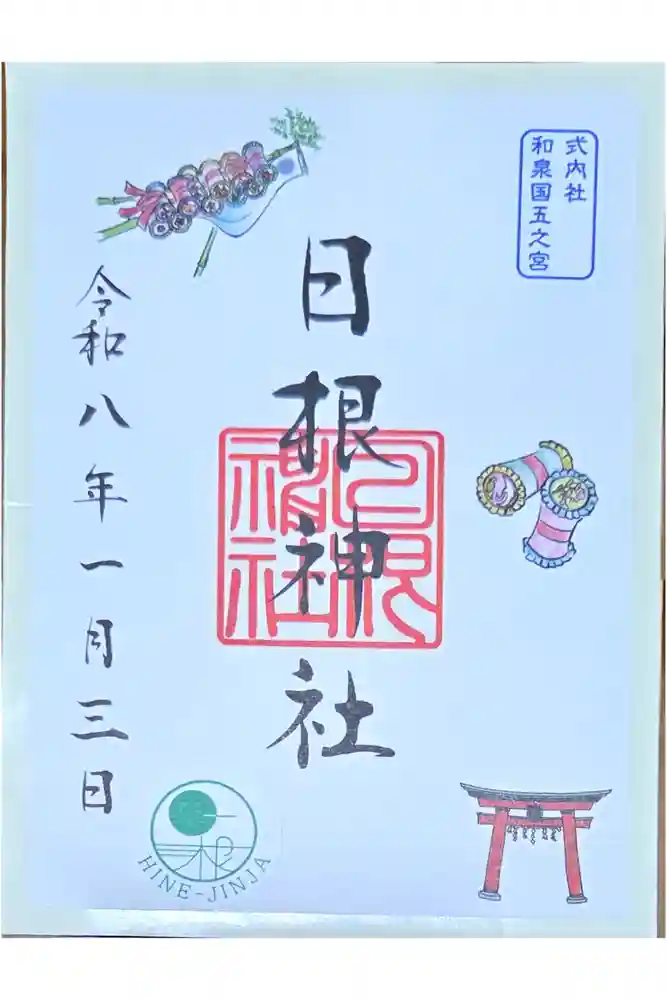 式内社
和泉国五之宮
日根神社
令和八年一月三日
日根神社
HINE-JINJA